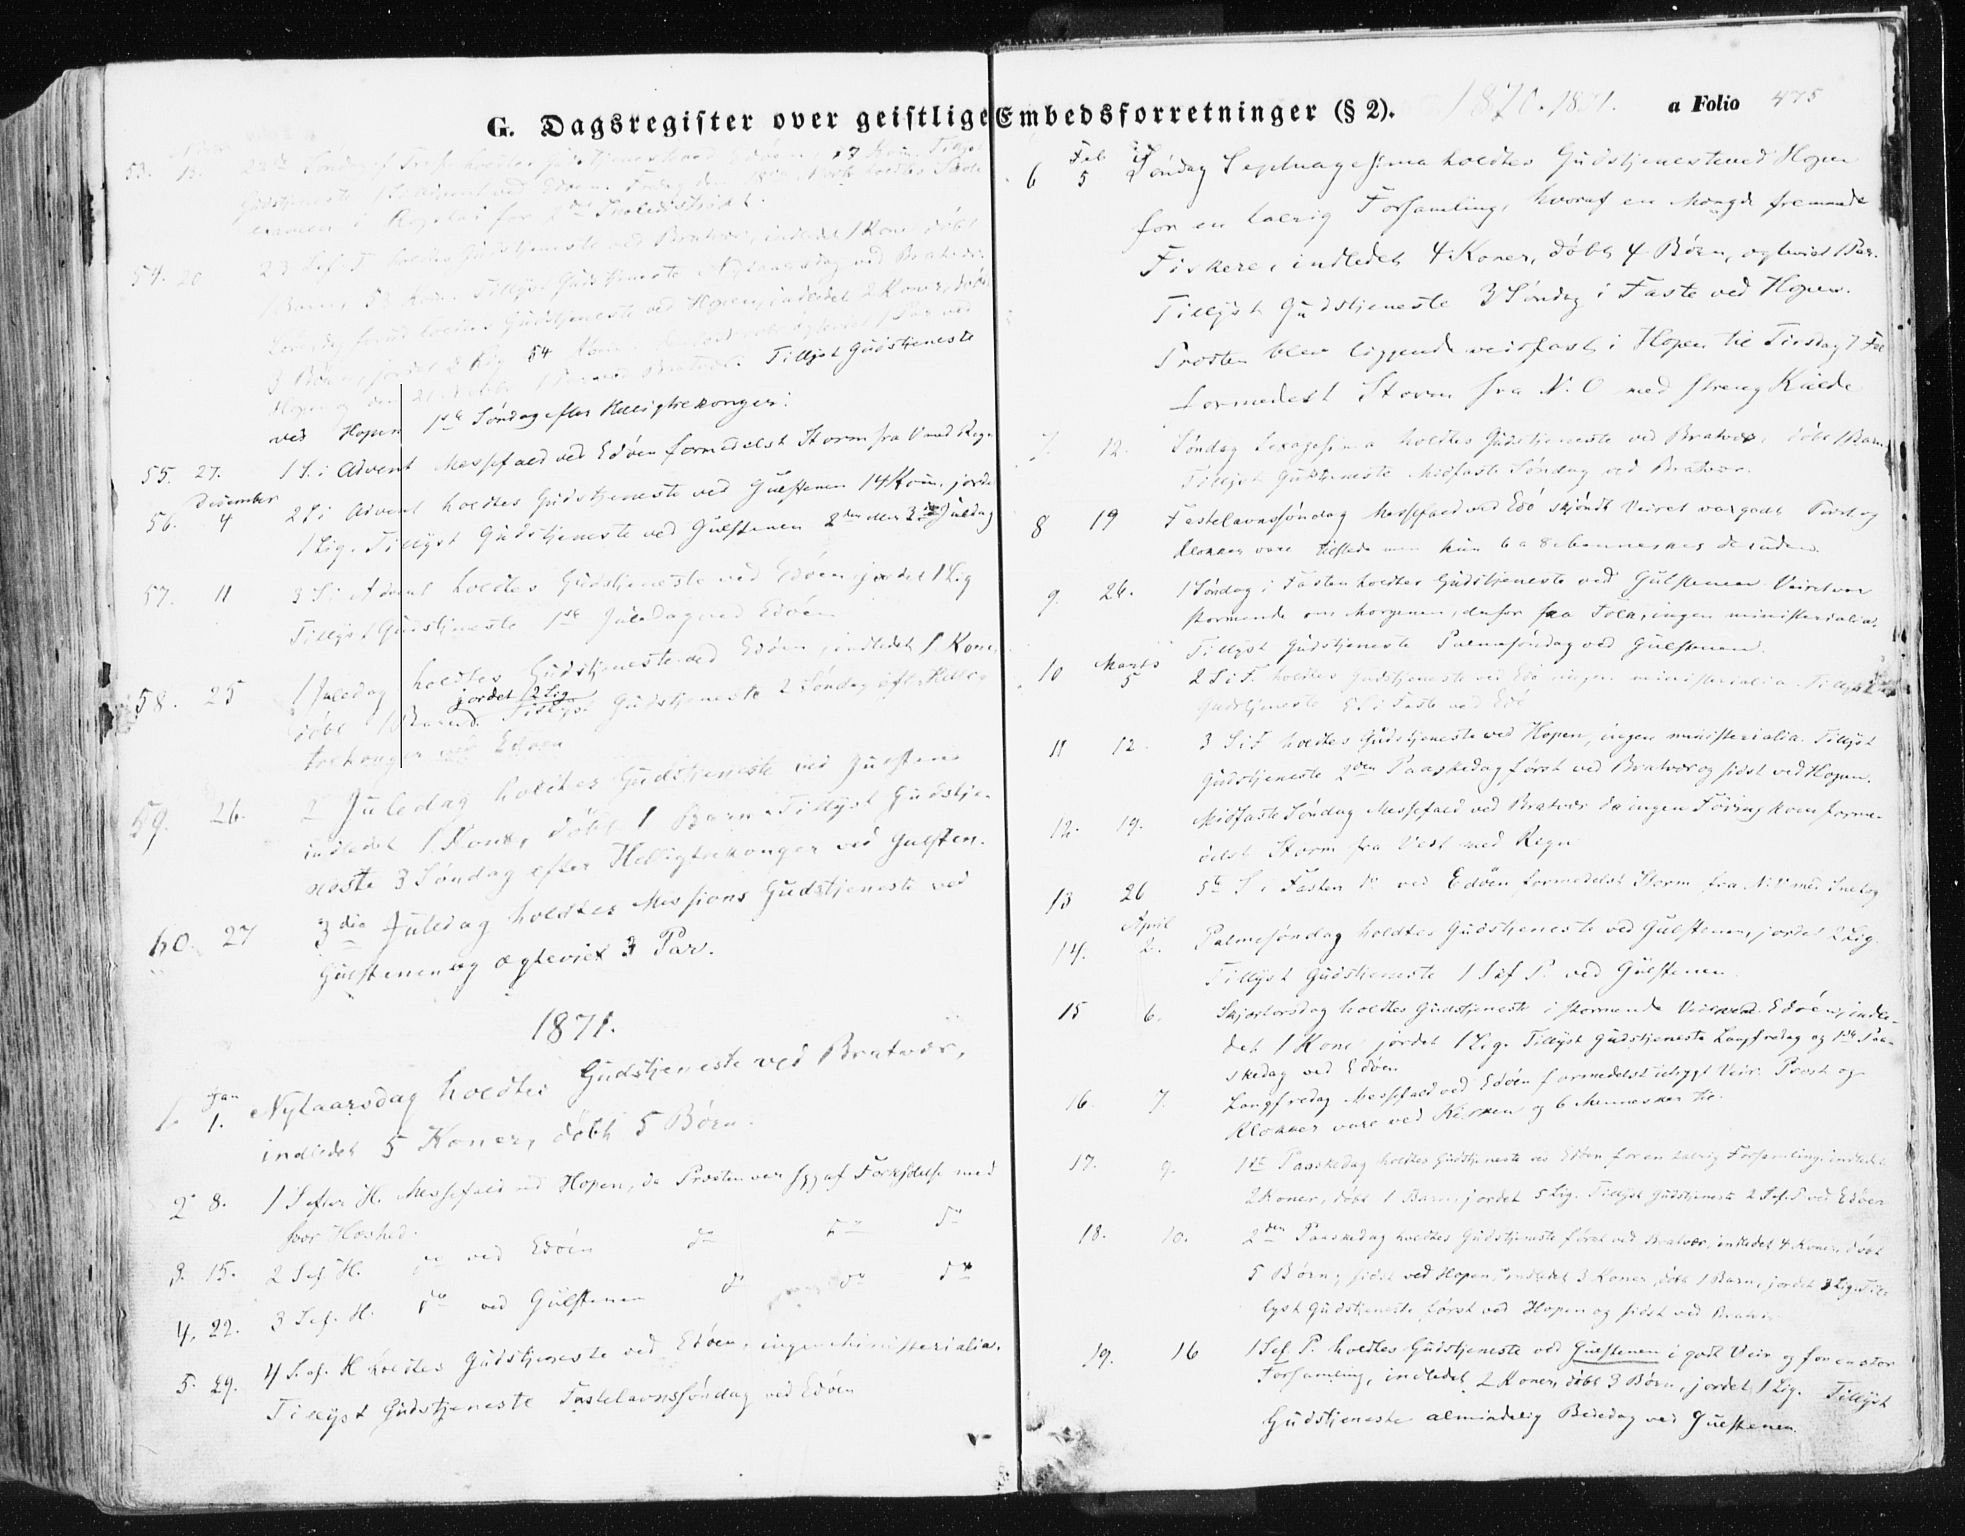 G. Dagsregister over geistlige Embedsforretninger (§ 2). 1870. 1871. a Folio 475
53. 13. Søndag holdtes Gudstjeneste ved Edøen, 27 Kom. Tillyst
Gudstjeneste ved Edøen. Fredag den
for Skoledistrikt.
54. 20 23 S. ef. T holdtes Gudstjeneste ved Bratvær, indledet 1 Kone, døbt
1 Barn, 53 Kom. Tillyst Gudstjeneste Nytaarsdag ved Bratvær.
holdtes Gudstjeneste ved Hopen, indledet 2 Koner, døbt
3 Børn, jordet 2 Lig 54 Kom. 1 Par ved
Hopen og den 21 døbt 1 Barn ved Bratvær. Tillyst Gudstjeneste
ved Hopen 1ste Søndag efter Helligtrekonger.
55. 27. 1 S. i Advent Messefald ved Edøen formedelst Storm fra V med Regn
December
56. 4 2 S i Advent holdtes Gudstjeneste ved Gulstenen 14 Kom. jordet
1 Lig. Tillyst Gudstjeneste ved Gulstenen 2den eller 3die Juledag
57. 11 3 S i Advent holdtes Gudstjeneste ved Edøen, jordet 1 Lig
Tillyst Gudstjeneste 1ste Juledag ved Edøen
58. 25 1 Juledag holdtes Gudstjeneste ved Edøen, indledet 1 Kone,
jordet 2 Lig
døbt 1 Barn. Tillyst Gudstjeneste 2 Søndag efter Hellig-
trekonger ved Edøen
59. 26. 2 Juledag holdtes Gudstjeneste ved Gulstenen
indledet 1 Kone, døbt 1 Barn. Tillyst Gudstje-
neste 3 Søndag efter Helligtrekonger ved Gulsten.
60. 27 3die Juledag holdtes Missions Gudstjeneste ved
Gulstenen og ægteviet 3 Par.
1871.
Jan
1. 1. Nytaarsdag holdtes Gudstjeneste ved Bratvær,
indledet 5 Koner, døbt 5 Børn.
2 8. 1 S efter H. Messefald ved Hopen, da Provsten var syg af Forkjølelse med
svær Hæshed.
3. 15. 2 S ef. H. do ved Edøen do do do
4. 22. 3 S ef. H. do ved Gulstenen do do do
5. 29. 4 S. ef. H holdtes Gudstjeneste ved Edøen, ingen ministerialia.
Tillyst Gudstjeneste Fastelavnssøndag ved Edøen
Feb
6 5 Søndag Septuagesima holdtes Gudstjeneste ved Hopen
for en talrig Forsamling, hvoraf en Mængde fremmede
Fiskere, indledet 4 Koner, døbt 4 Børn, ægteviet 1 Par.
Tillyst Gudstjeneste 3 Søndag i Faste ved Hopen.
Provsten blev liggende veirfast i Hopen til Tirsdag 7 Feb
formedelst Storm fra N. O med streng Kulde
7. 12. Søndag Sexagesima holdtes Gudstjeneste ved Bratvær, døbt 1 Barn.
Tillyst Gudstjeneste Midfaste Søndag ved Bratvær.
8 19 Fastelavnssøndag Messefald ved Edø skjøndt Veiret var godt Provst og
Klokker vare tilstede men kun 6 a 8 Mennesker desuden.
9. 26. 1 Søndag i Fasten holdtes Gudstjeneste ved Gulstenen Veiret var
stormende om Morgenen, derfor faa Folk, ingen ministerialia.
Tillyst Gudstjeneste Palmesøndag ved Gulstenen.
10 Marts 5 2 S i F. holdtes Gudstjeneste ved Edø ingen ministerialia. Tillyst
Gudstjeneste 5 S i Faste ved Edø
11 12. 3 S i F holdtes Gudstjeneste ved Hopen, ingen ministerialia. Tillyst
Gudstjeneste 2den Paaskedag først ved Bratvær og sidst ved Hopen.
12. 19. Midfaste Søndag Messefald ved Bratvær da ingen Føring kom forme-
delst Storm fra Vest med Regn
13 26 5te S i Fasten do ved Edøen formedelst Storm fra N.V med Snetog
April
14. 2. Palmesøndag holdtes Gudstjeneste ved Gulstenen, jordet 2 Lig.
Tillyst Gudstjeneste 1 S ef P. ved Gulstenen
15 6. Skjærtorsdag holdtes Gudstjeneste i stormende Veir ved Edøen, indle-
det 1 Kone jordet 1 Lig. Tillyst Gudstjeneste Langfredag og 1ste Paa-
skedag ved Edøen
16. 7. Langfredag Messefald ved Edøen formedelst stygt Veir. Provst og
Klokker vare ved Kirken og 6 Mennesker til.
17. 9. 1ste Paaskedag holdtes Gudstjeneste ved Edøen for en talrig Forsamling, indledet
2 Koner, døbt 1 Barn, jordet 5 Lig. Tillyst Gudstjeneste 2 S ef. P ved Edøen
18. 10. 2den Paaskedag holdtes Gudstjeneste først ved Bratvær, indledet 4 Koner, døbt
5 Børn, sidst ved Hopen, indledet 3 Koner, døbt 1 Barn, jordet 3 Lig. Til-
lyst Gudstjeneste først ved Hopen og sidst ved Bratvær
19. 16 1 S ef P. holdtes Gudstjeneste ved Gulstenen i godt Veir og for en stor
Forsamling, indledet 2 Koner, døbt 3 Børn, jordet 1 Lig. Tillyst
Gudstjeneste almindelig Bededag ved Gulstenen.